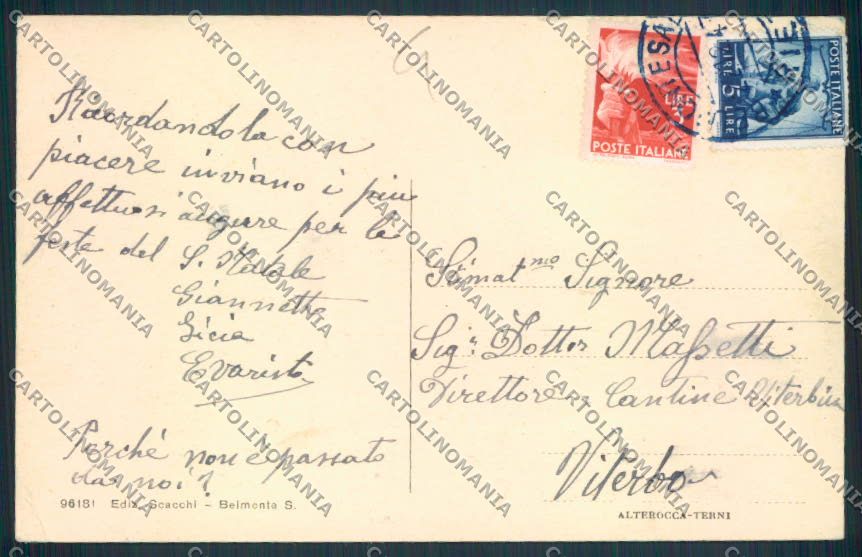 Ricordandola con
piacere inviano i più
affettuosi augure per le
feste del S. Natale
Giannetta
Licia
Evaristo
Perchè non è passato
da noi?
96181 Ediz. Scacchi - Belmonte S.
LIRE 3
POSTE ITALIANE
POSTE ITALIANE
LIRE 5 LIRE
Stimat.mo Signore
Sig.r Dottor Massetti
Direttore Cantine Viterbin
Viterbo
ALTEROCCA-TERNI
CARTOLINOMANIA